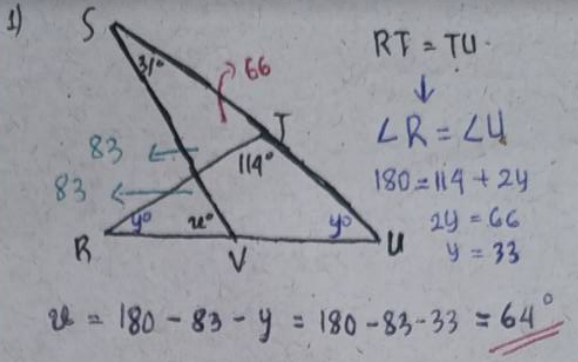 1)
S
31°
66
RT = TU
∠R = ∠U
83
T
114°
83
180 = 114 + 2y
y°
x°
y°
2y = 66
R
V
U
y = 33
x = 180 - 83 - y = 180 - 83 - 33 = 64°